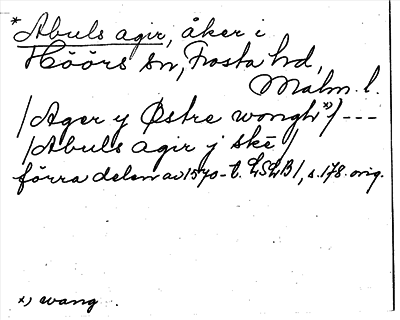 *Abuls agir, åker i
Höörs sn, Frosta hd,
Malm. l.
/Ager y Østre wongh x)/ ---
/Abuls agir j skē/
förra delen av 1570-t. LSLB1, s. 178. orig.
x) wang.